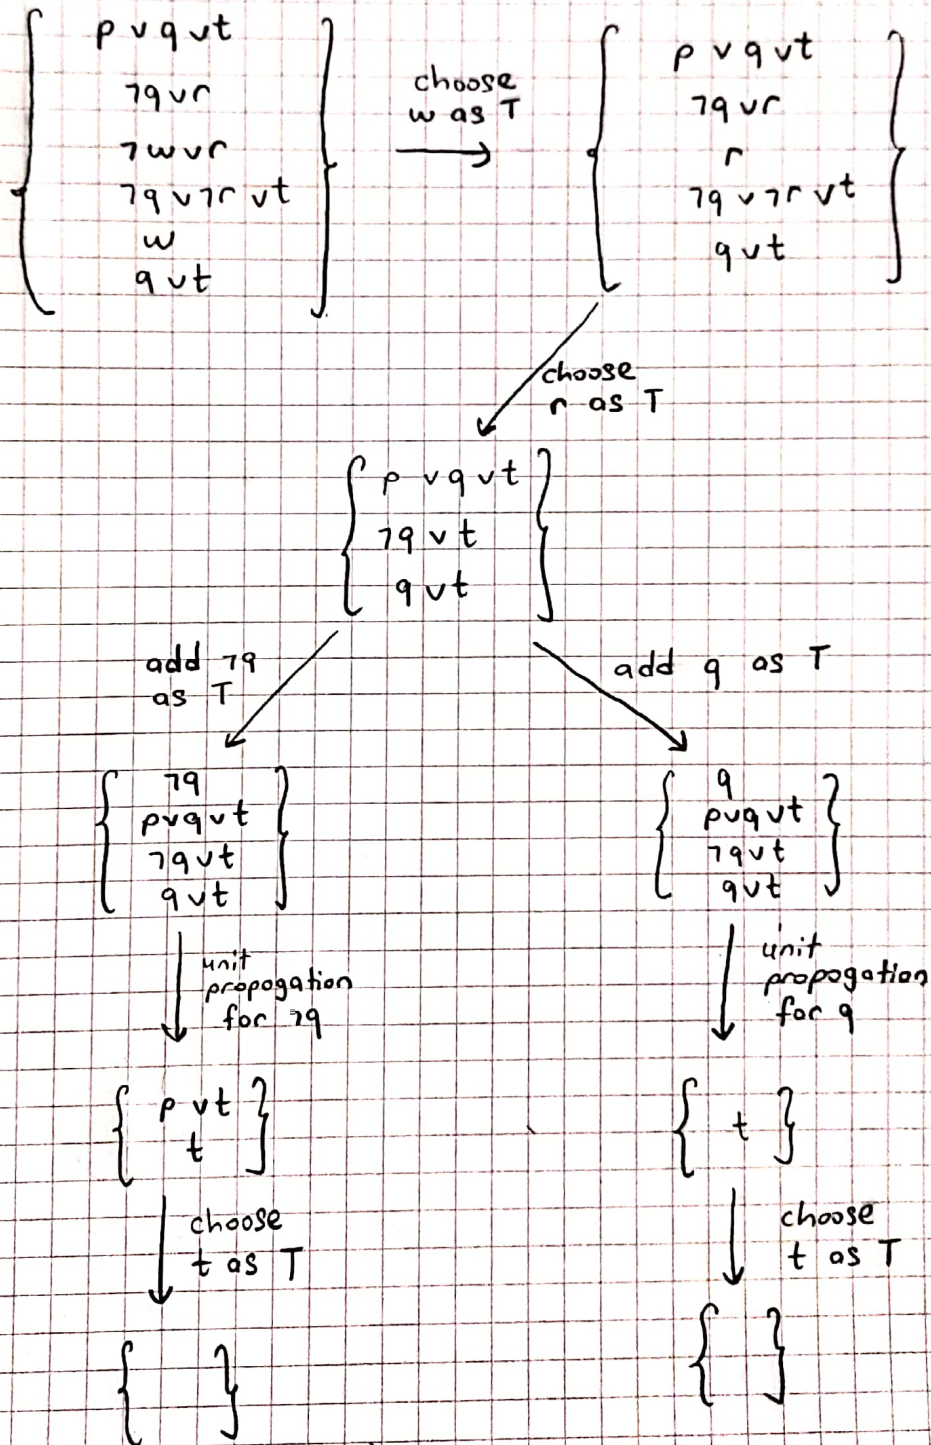 p ∨ q ∨ t
¬q ∨ r
¬w ∨ r
¬q ∨ ¬r ∨ t
w
q ∨ t
choose
w as T
p ∨ q ∨ t
¬q ∨ r
r
¬q ∨ ¬r ∨ t
q ∨ t
choose
r as T
p ∨ q ∨ t
¬q ∨ t
q ∨ t
add ¬q
as T
add q as T
¬q
p ∨ q ∨ t
¬q ∨ t
q ∨ t
q
p ∨ q ∨ t
¬q ∨ t
q ∨ t
unit
propogation
for ¬q
unit
propogation
for q
p ∨ t
t
t
choose
t as T
choose
t as T